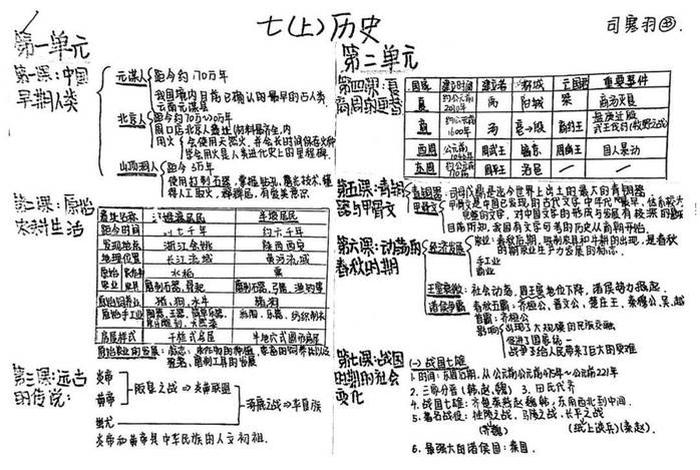 七(上)历史
第一单元
第一课:中国
早期人类
元谋人
距今约170万年
我国境内目前已确认的最早的古人类
云南元谋县
北京人
距今约70万—20万年
周口店北京人遗址
会使用天然火,并会长时间保存火种
学会用火是人类进化史上的里程碑
山顶洞人
距今约3万年
使用打制石器,掌握钻孔、磨光技术,懂
得人工取火,有爱美意识
第二课:原始
农耕生活
居民名称 河姆渡居民 半坡居民
距今时间 约七千年 约六千年
发现地点 浙江余姚 陕西西安
地理位置 长江流域 黄河流域
水稻 粟
猪、狗、水牛 猪、狗
房屋样式 干栏式房屋 半地穴式圆形房屋
第三课:远古
的传说:
炎帝
黄帝
阪泉之战⇒炎黄联盟
蚩尤
涿鹿之战⇒华夏族
炎帝和黄帝是中华民族的人文初祖.
第二单元
第四课:夏
商周的更替
国家 建立时间 建立者 都城 亡国君 重要事件
夏 约公元前2070年 禹 阳城 桀
商 约公元前1600年 汤 亳→殷 商纣王
武王伐纣(牧野之战)
西周 公元前1046年 周武王 镐京 周幽王 国人暴动
东周 公元前770年 周平王 洛邑 — —
第五课:青铜
器与甲骨文
青铜器:司母戊鼎是迄今世界上出土的最大的青铜器
甲骨文:甲骨文是中国已发现的古代文字中年代最早、体系较为
完整的文字,对中国文字的形成与发展有极深的影响
目前所知,我国有文字可考的历史从商朝开始.
第六课:动荡的
春秋时期
经济发展
农业:春秋后期,铁制农具和牛耕的出现,是春秋
时期农业生产力发展的标志.
手工业
商业
王室衰微:社会动荡,周王室地位下降,诸侯势力崛起.
诸侯争霸
春秋五霸:齐桓公、晋文公、楚庄王、秦穆公、吴、越
首霸:齐桓公
影响
出现了大规模的民族交融
促进了国家统一
战争多给人民带来了巨大的灾难
第七课:战国
时期的社会
变化
(一)战国七雄
1.时间:东周后期,从公元前475年~公元前221年
2.三家分晋(韩、赵、魏) 3.田氏代齐
4.战国七雄:齐楚秦燕赵魏韩,东南西北到中间.
5.著名战役:桂陵之战、马陵之战、长平之战
(齐魏) (纸上谈兵)(秦赵)
6.最强大的诸侯国:秦国.